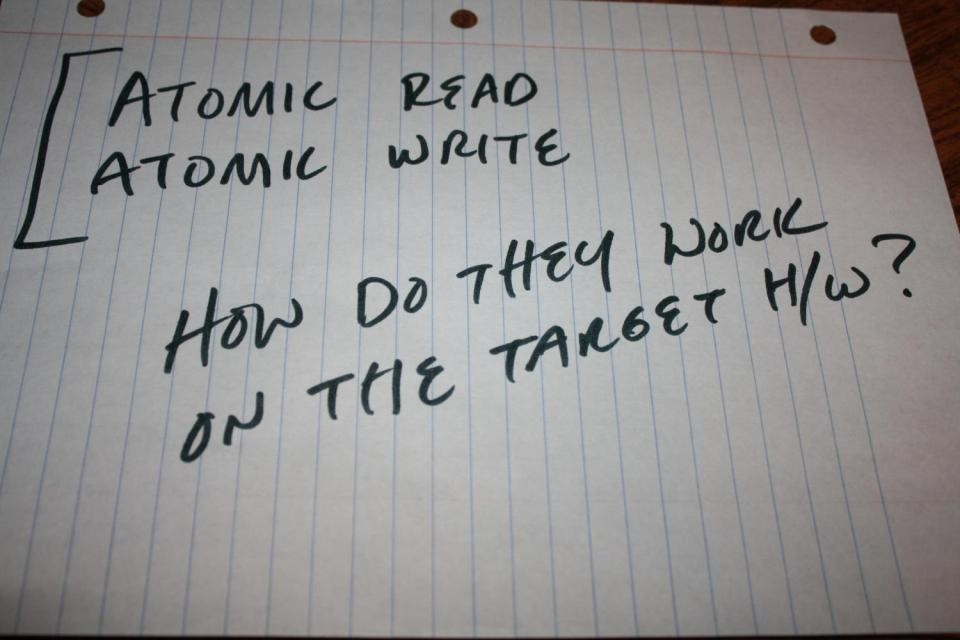 ATOMIC READ
ATOMIC WRITE
HOW DO THEY WORK
ON THE TARGET H/W?